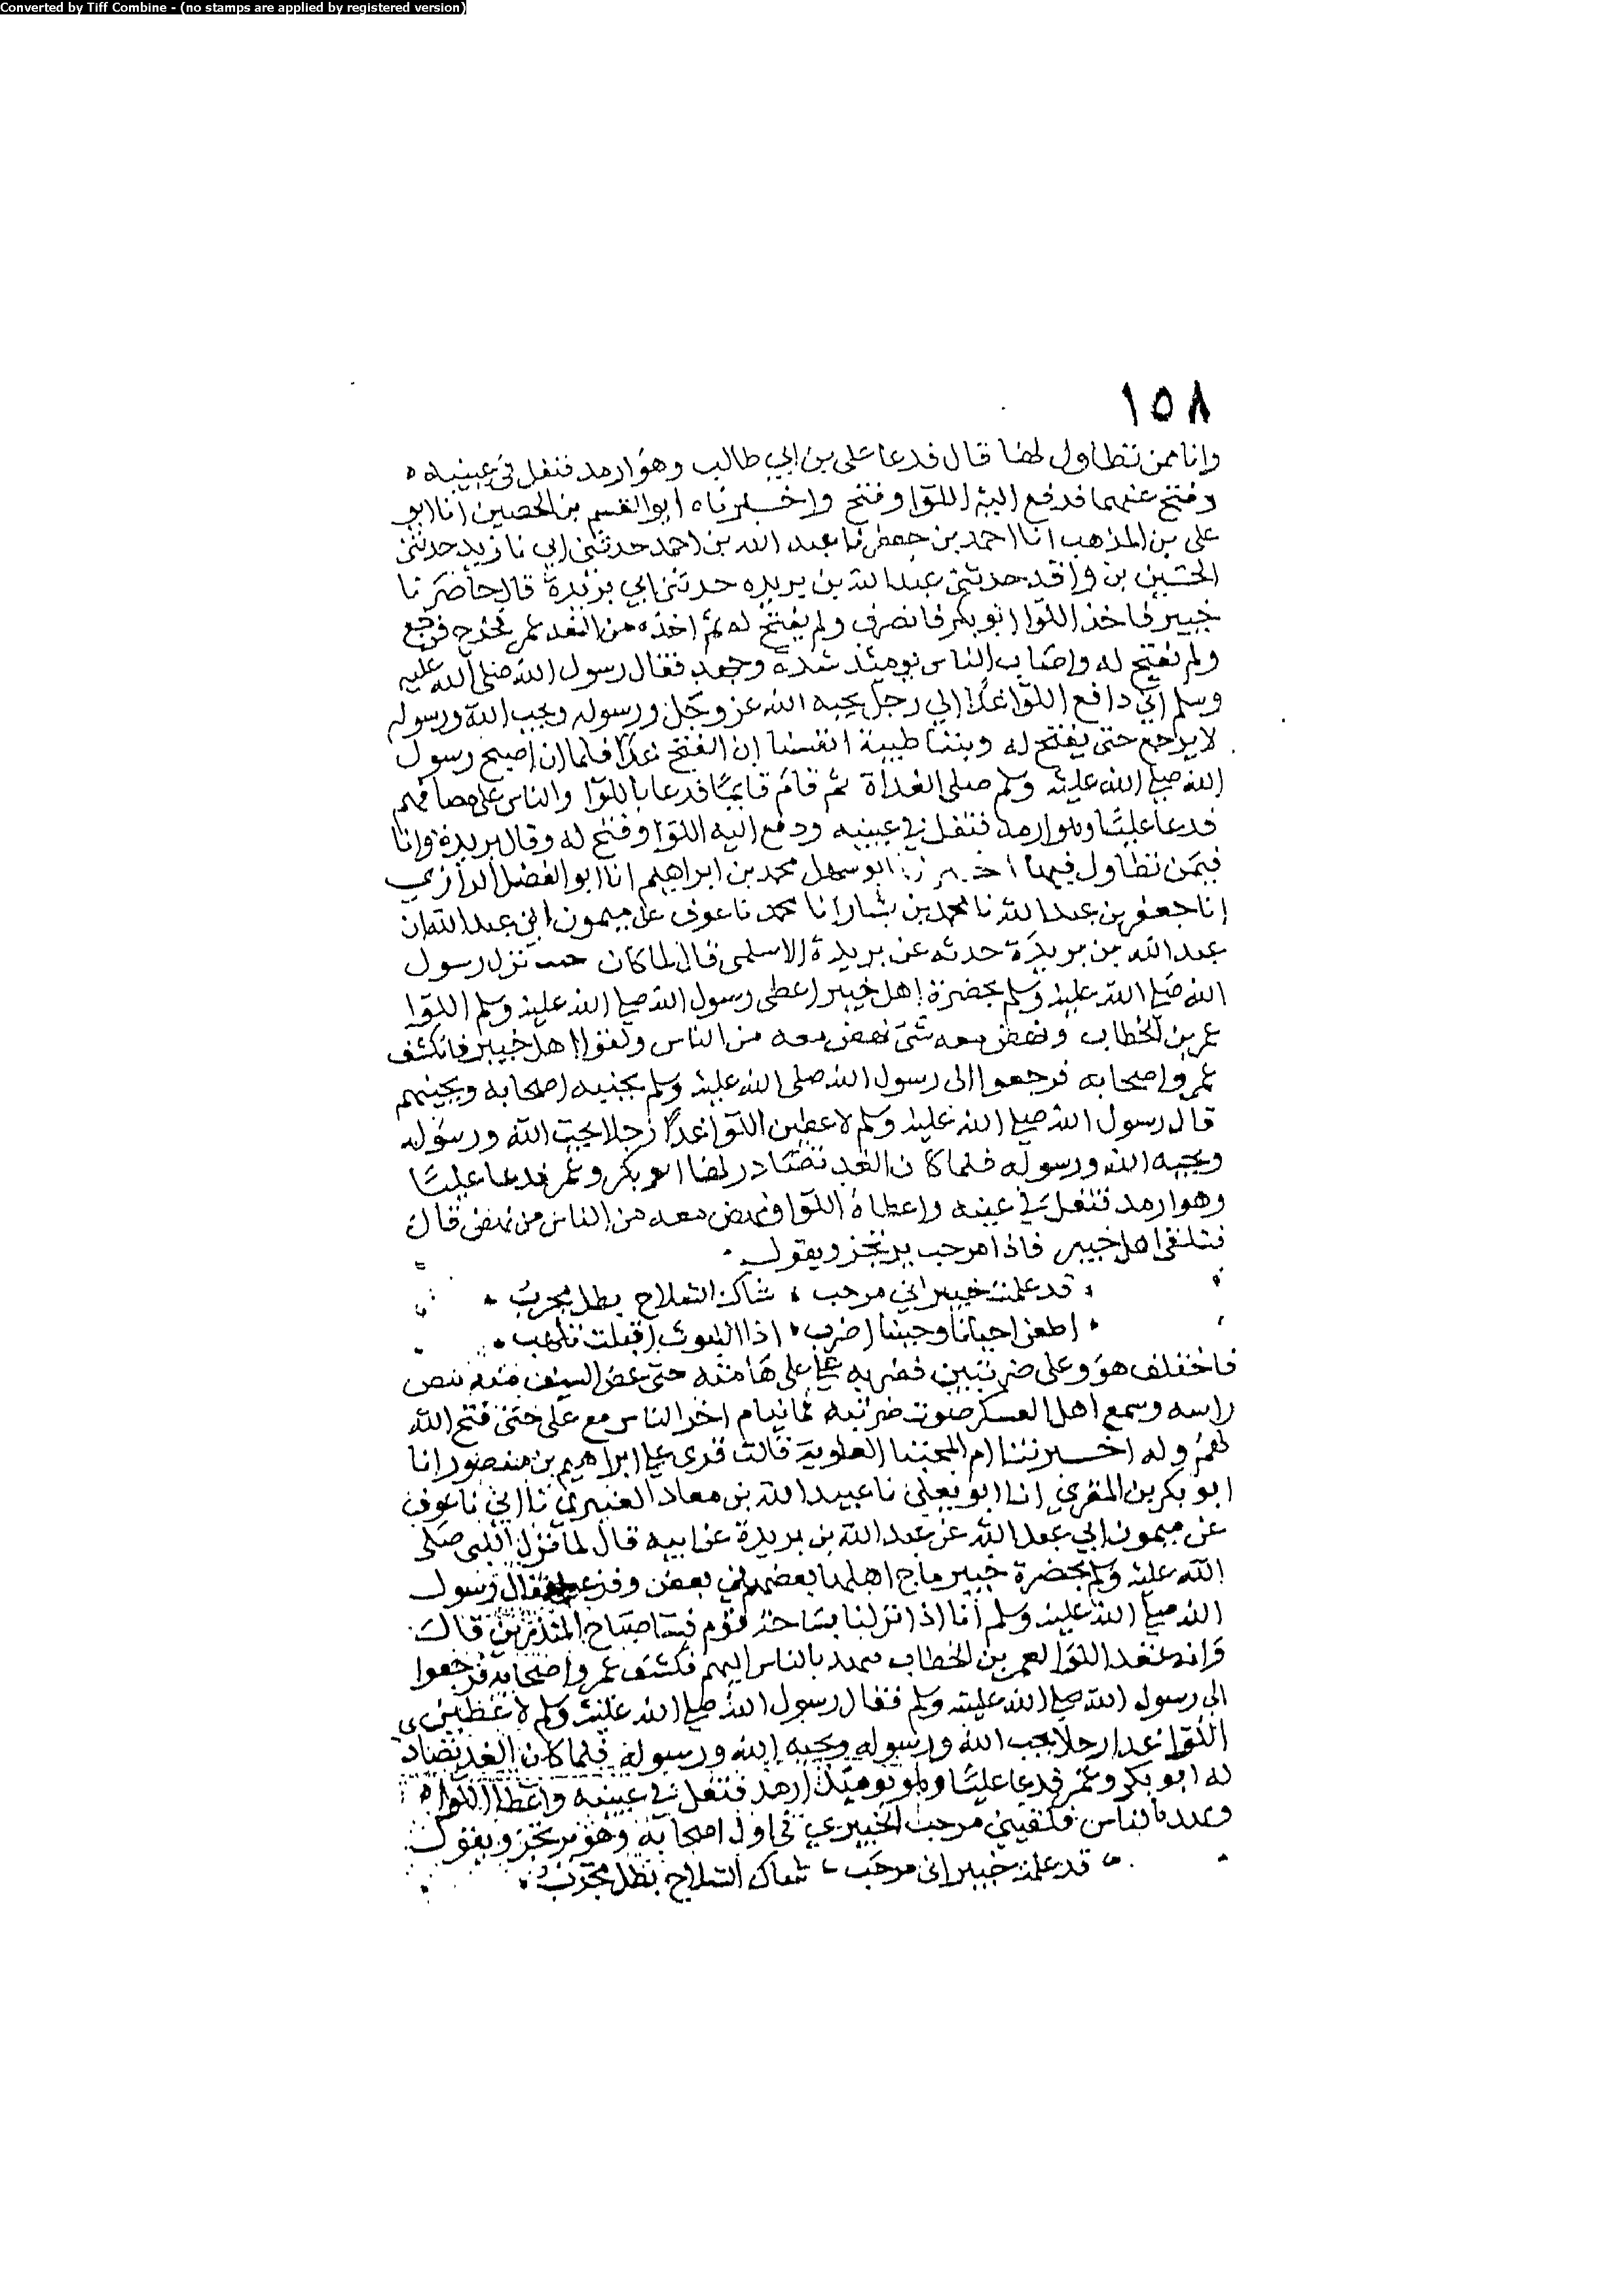 Converted by Tiff Combine - (no stamps are applied by registered version)
١٥٨
وانا ممن تطاول لها قال فدعا على بن ابي طالب وهو ارمد فتفل في عينيه
وفتح عنهما فدفع اليه اللوا وفتح واخبرناه ابو القسم بن الحصين انا ابو
على بن المذهب انا احمد بن جعفر نا عبد الله بن احمد حدثني ابي نا زيد حدثني
الحسين بن واقد حدثني عبد الله بن بريده حدثني ابي بريدة قال حاصرنا
خيبر فاخذ اللوا ابو بكر فانصرف ولم يفتح له ثم اخذه من الغد عمر فخرج فرجع
ولم يفتح له واصاب الناس يومئذ شدة وجهد فقال رسول الله صلى الله عليه
وسلم اني دافع اللوا غدا الي رجل يحبه الله عز وجل ورسوله ويحب الله ورسوله
لا يرجع حتى يفتح له وبتنا طيبة انفسنا ان الفتح غدا فلما ان اصبح رسول
الله صلى الله عليه وسلم صلى الغداة ثم قام قايما فدعا باللوا والناس على مصافهم
فدعا عليا وهو ارمد فتفل في عينيه ودفع اليه اللوا وفتح له وقال بريدة وانا
فيمن تطاول فيها اخبرنا ابو سهل محمد بن ابراهيم انا ابو الفضل الرازي
انا جعفر بن عبد الله نا محمد بن بشار نا محمد نا عوف عن ميمون ابي عبد الله ان
عبد الله بن بريدة حدثه عن بريدة الاسلمى قال لما كان نزل رسول
الله صلى الله عليه وسلم بحضرة اهل خيبر اعطى رسول الله صلى الله عليه وسلم اللوا
عمر بن الخطاب ونهض معه من نهض معه من الناس ولقوا اهل خيبر فانكشف
عمر واصحابه فرجعوا الى رسول الله صلى الله عليه وسلم يجبنه اصحابه ويجبنهم
قال رسول الله صلى الله عليه وسلم لاعطين اللوا غدا رجلا يحب الله ورسوله
ويحبه الله ورسوله فلما كان الغد تصادر لها ابو بكر وعمر فدعا عليا
وهو ارمد فتفل في عينه واعطاه اللوا ونهض معه من الناس من نهض قال
فتلقى اهل خيبر فاذا مرحب يرتجز ويقول
قد علمت خيبر اني مرحب شاك السلاح بطل مجرب
اطعن احيانا وحينا اضرب اذا الليوث اقبلت تلهب
فاختلف هو وعلى ضربتين فضربه على على هامته حتى عض السيف منه
راسه وسمع اهل العسكر صوت ضربته فما تتام اخر الناس مع على حتى فتح الله
لهم وله اخبرتنا ام المجتبا العلوية قالت قرى على ابراهيم بن منصور انا
ابو بكر بن المقرى انا ابو يعلى نا عبيد الله بن معاد العنبري نا ابي نا عوف
عن ميمون ابي عبد الله عن عبد الله بن بريدة عن ابيه قال لما نزل النبى صلى
الله عليه وسلم بحضرة خيبر ماج اهلها بعضهم في بعض وفزعوا فقال رسول
الله صلى الله عليه وسلم انا اذا نزلنا بساحة قوم فسا صباح المنذرين قال
اللوا لعمر بن الخطاب بالناس اليهم فكشف عمر واصحابه فرجعوا
الى رسول الله صلى الله عليه وسلم فقال رسول الله صلى الله عليه وسلم لاعطين
اللوا غدا رجلا يحب الله ورسوله ويحبه الله ورسوله فلما كان الغد تصادر
له ابو بكر وعمر فدعا عليا وهو يوميذ ارمد فتفل في عينه واعطاه اللوا
بالناس فلقيني مرحب الخيبري في اول اصحابه وهو يرتجز ويقول
قد علمت خيبر انى مرحب شاك السلاح بطل مجرب